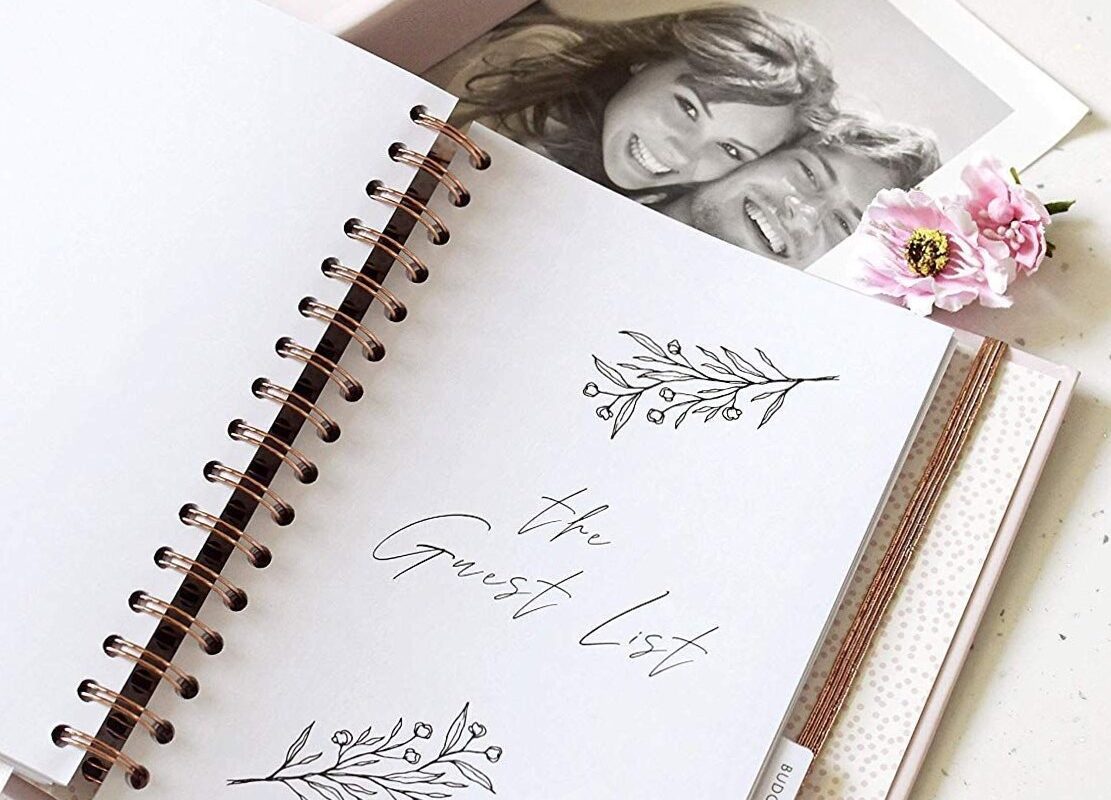 the
Guest List